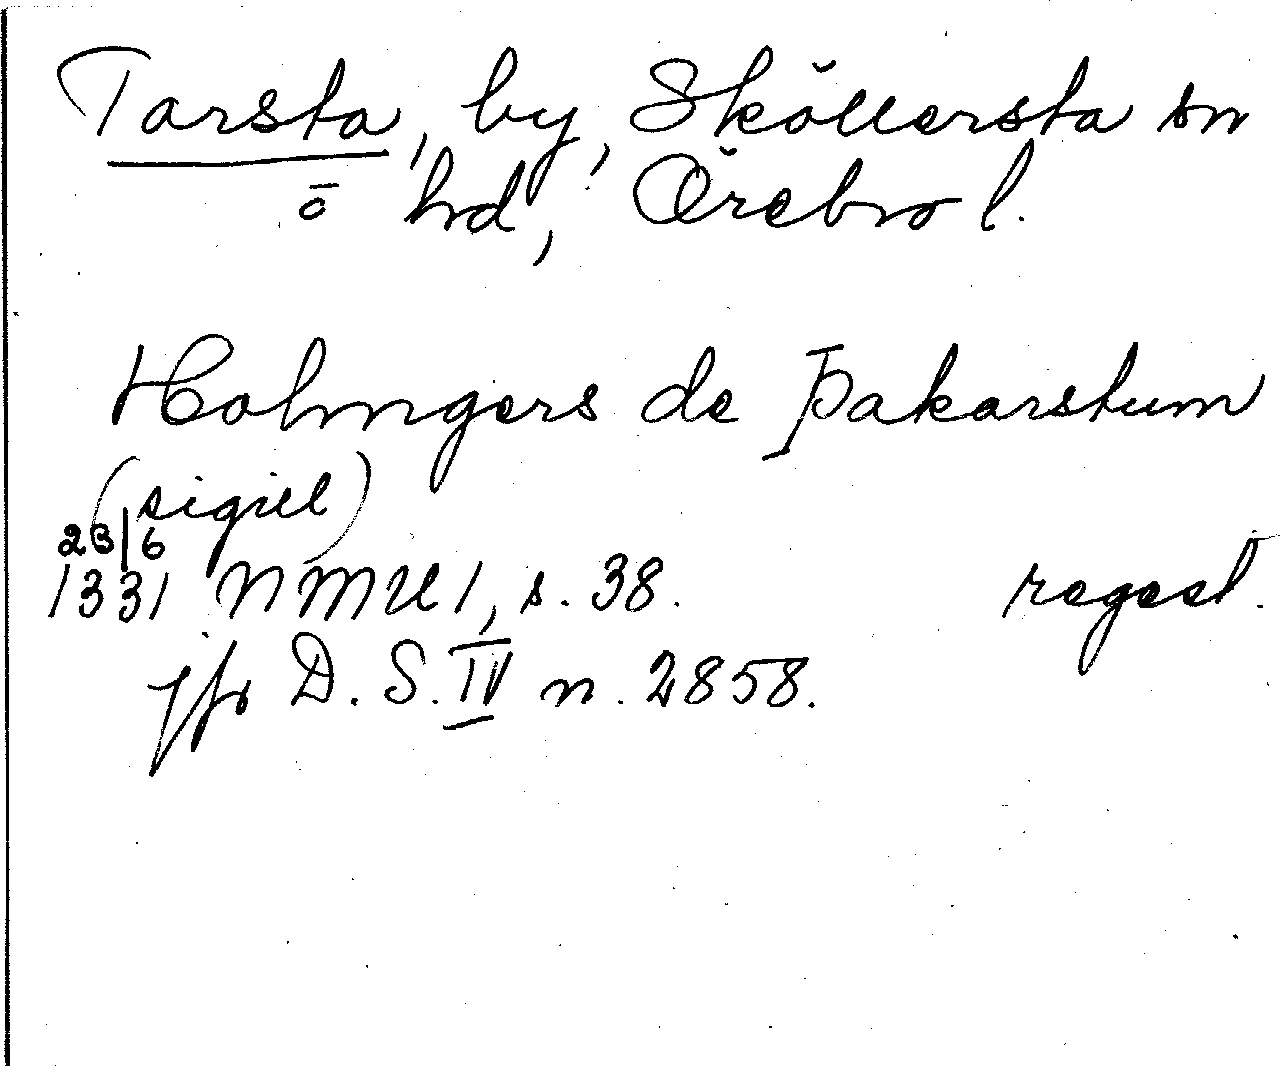 Tarsta, by, Sköllersta sn
o hd, Örebro l.
Holmgers de Þakarstum
(sigill)
23/6
1331 NMU 1, s. 38. regest.
jfr D. S. IV n. 2858.